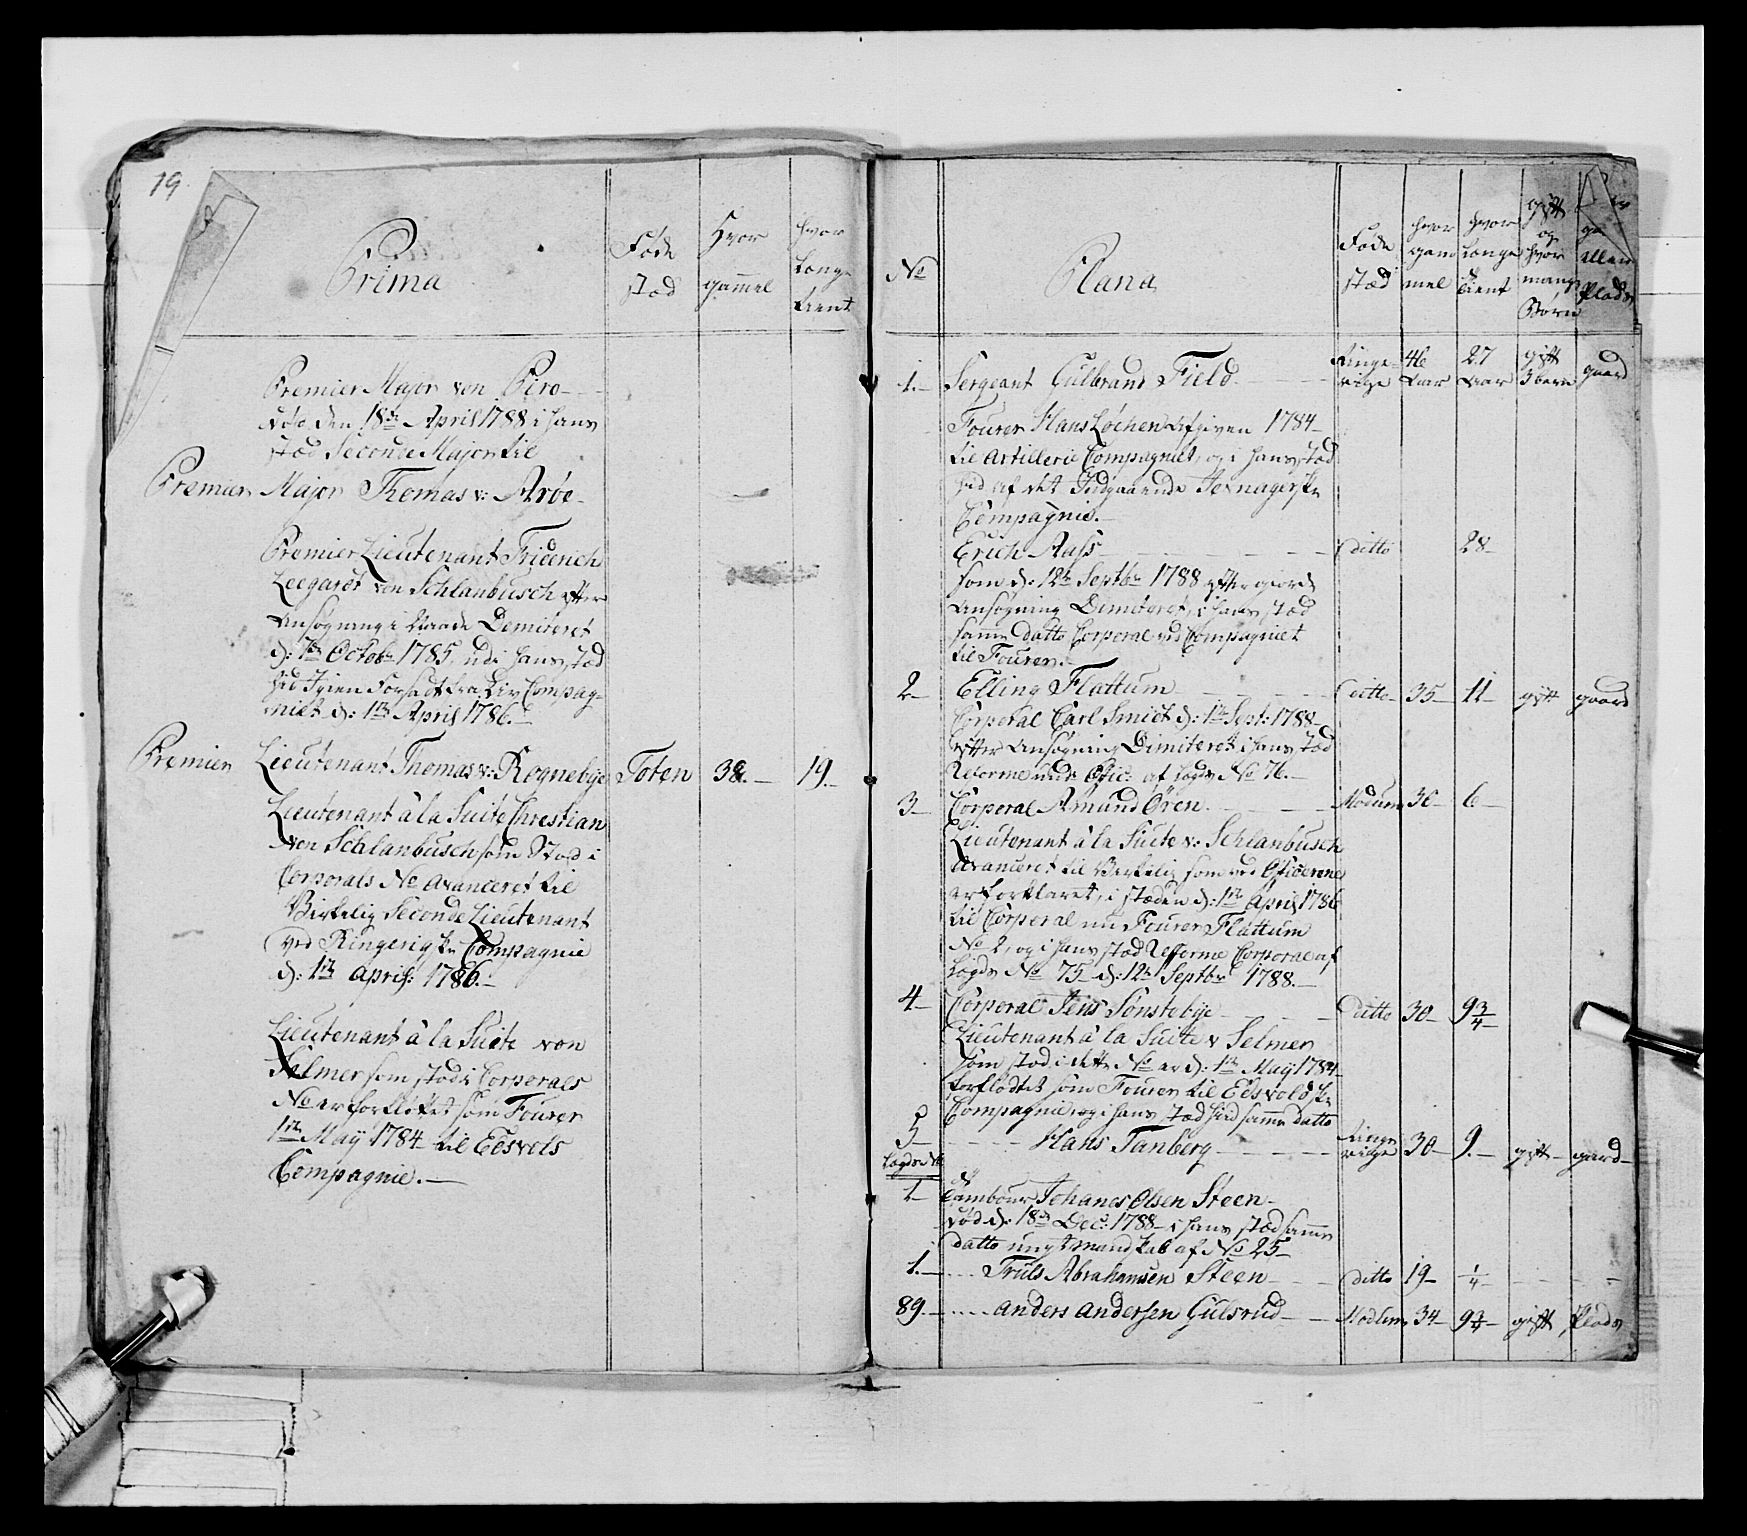 19
Prima
Føde
stæd
Hvor
gammel
hvor
længe
tient
Premier Major von Piro
død den 18de April 1788 i hans
stæd Seconde Major til
Premier Major Thomas v: Arøe
Premier Lieutenant Friderich
Leegardt von Schlanbusch efter
Ansøgning i Naade Demiteret
d: 7de Octobr 1785, udi hans stæd
hid igien forsadt fra Liv Compag-
niet d: 1te April 1786.
Premier Lieutenant Thomas v: Rognebye Toten 38.- 19.-
Lieutenant à la Suite Christian
von Schlanbusch som Stod i
Corporals No avanceret til
Virkelig Seconde Lieutenant
ved Ringerigske Compagnie
d: 1te April: 1786.-
Lieutenant à la Suite von
Selmer som stod i Corporals
No er forfløttet som Fourer
1te May 1784 til Eedsvols
Compagnie.-
No
Plana
Føde
stæd
hvor
gam
mel
hvor
længe
tient
gift
og
hvor
mange
Børn
gd
eller
Plads
1.- Sergeant Gulbrand Field Ringe-rige 46 Aar 27 Aar gift 3 børn gaard
Fourer Hans Løchen Afgiven 1784
til Artillerie Compagniet, og i hans stæd
hid af det Indgaaende Jevnagerske
Compagnie.-
Erich Aass Ditto 28-
som d: 12te Septbr 1788 efter giorde
Ansøgning Dimiteret, i hans stæd
samme Datto Corporal ved Compagniet
til Fourer.-
2- Elling Flattum Ditto- 35- 11- gift gaard
Corporal Carl Smidt d: 1te Sept: 1788
efter Ansøgning Dimiteret i hans stæd
Reforme und: Ofic: af Lægds No 76.-
3- Corporal Amund Øren Modum 36- 6-
Lieutenant à la Suite v: Schlanbusch
Avanceret til Virkelig som ved Officererne
er forklaret, i stæden d: 1te April 1786
til Corporal nu Fourer Flattum
No 2, og i hans stæd Refforme Corporal af
Lægds No 75 d: 12te Septbr 1788.-
4- Corporal Jens Sønstebye Ditto 30- 9 3/4-
Lieutenant à la Suite v Selmer
som stod i dette No er d: 1te May 1784
forfløttet som Fourer til Eedsvoldske
Compagnie, og i hans stæd hid samme datto
5- Hans Tanberg Ringe rige 30- 9.- gift- gaard-
Lægds No
1- Tambour Johanes Olsen Steen-
død d: 18de Dec: 1788- i hans stæd samme
datto ungt mandskab af No 25-
1.- Truls Abrahamsen Steen Ditto 19- 1/4-
89.- Anders Andersen Gulsrud Modum 34- 9 3/4- gift Plads